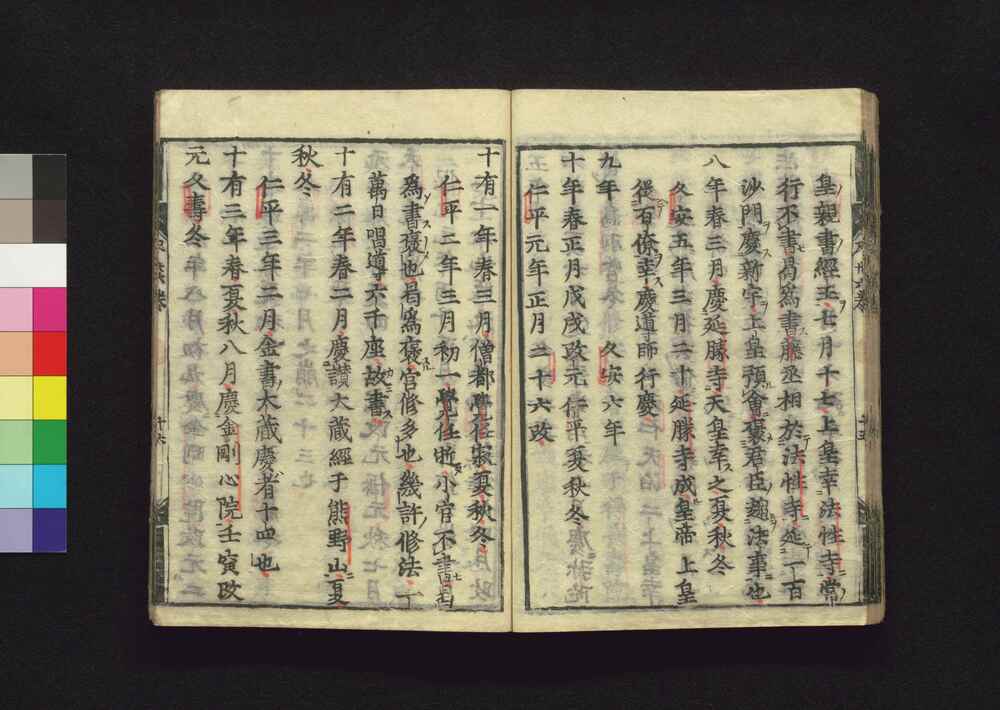 皇親書經王七月十七上皇幸法性寺當
行不書曷爲書藤丞相於法性寺延一百
沙門慶新宇上皇預會褒君臣趣法事也
八年春三月慶延勝寺天皇幸之夏秋冬
久安五年三月二十延勝寺成皇帝上皇
從百僚幸慶道師行慶
九年 久安六年
十年春正月戊戌改元仁平夏秋冬
仁平元年正月二十六改
十有一年春三月僧都覺任寂夏秋冬
仁平二年三月初一覺任逝小官不書曷
爲書褒也曷爲褒官修多也幾許修法一
萬日唱導六千座故書
十有二年春二月慶讃大藏經于熊野山夏
秋冬
仁平三年二月金書大藏慶者十四也
十有三年春夏秋八月慶金剛心院壬寅改
元久壽冬